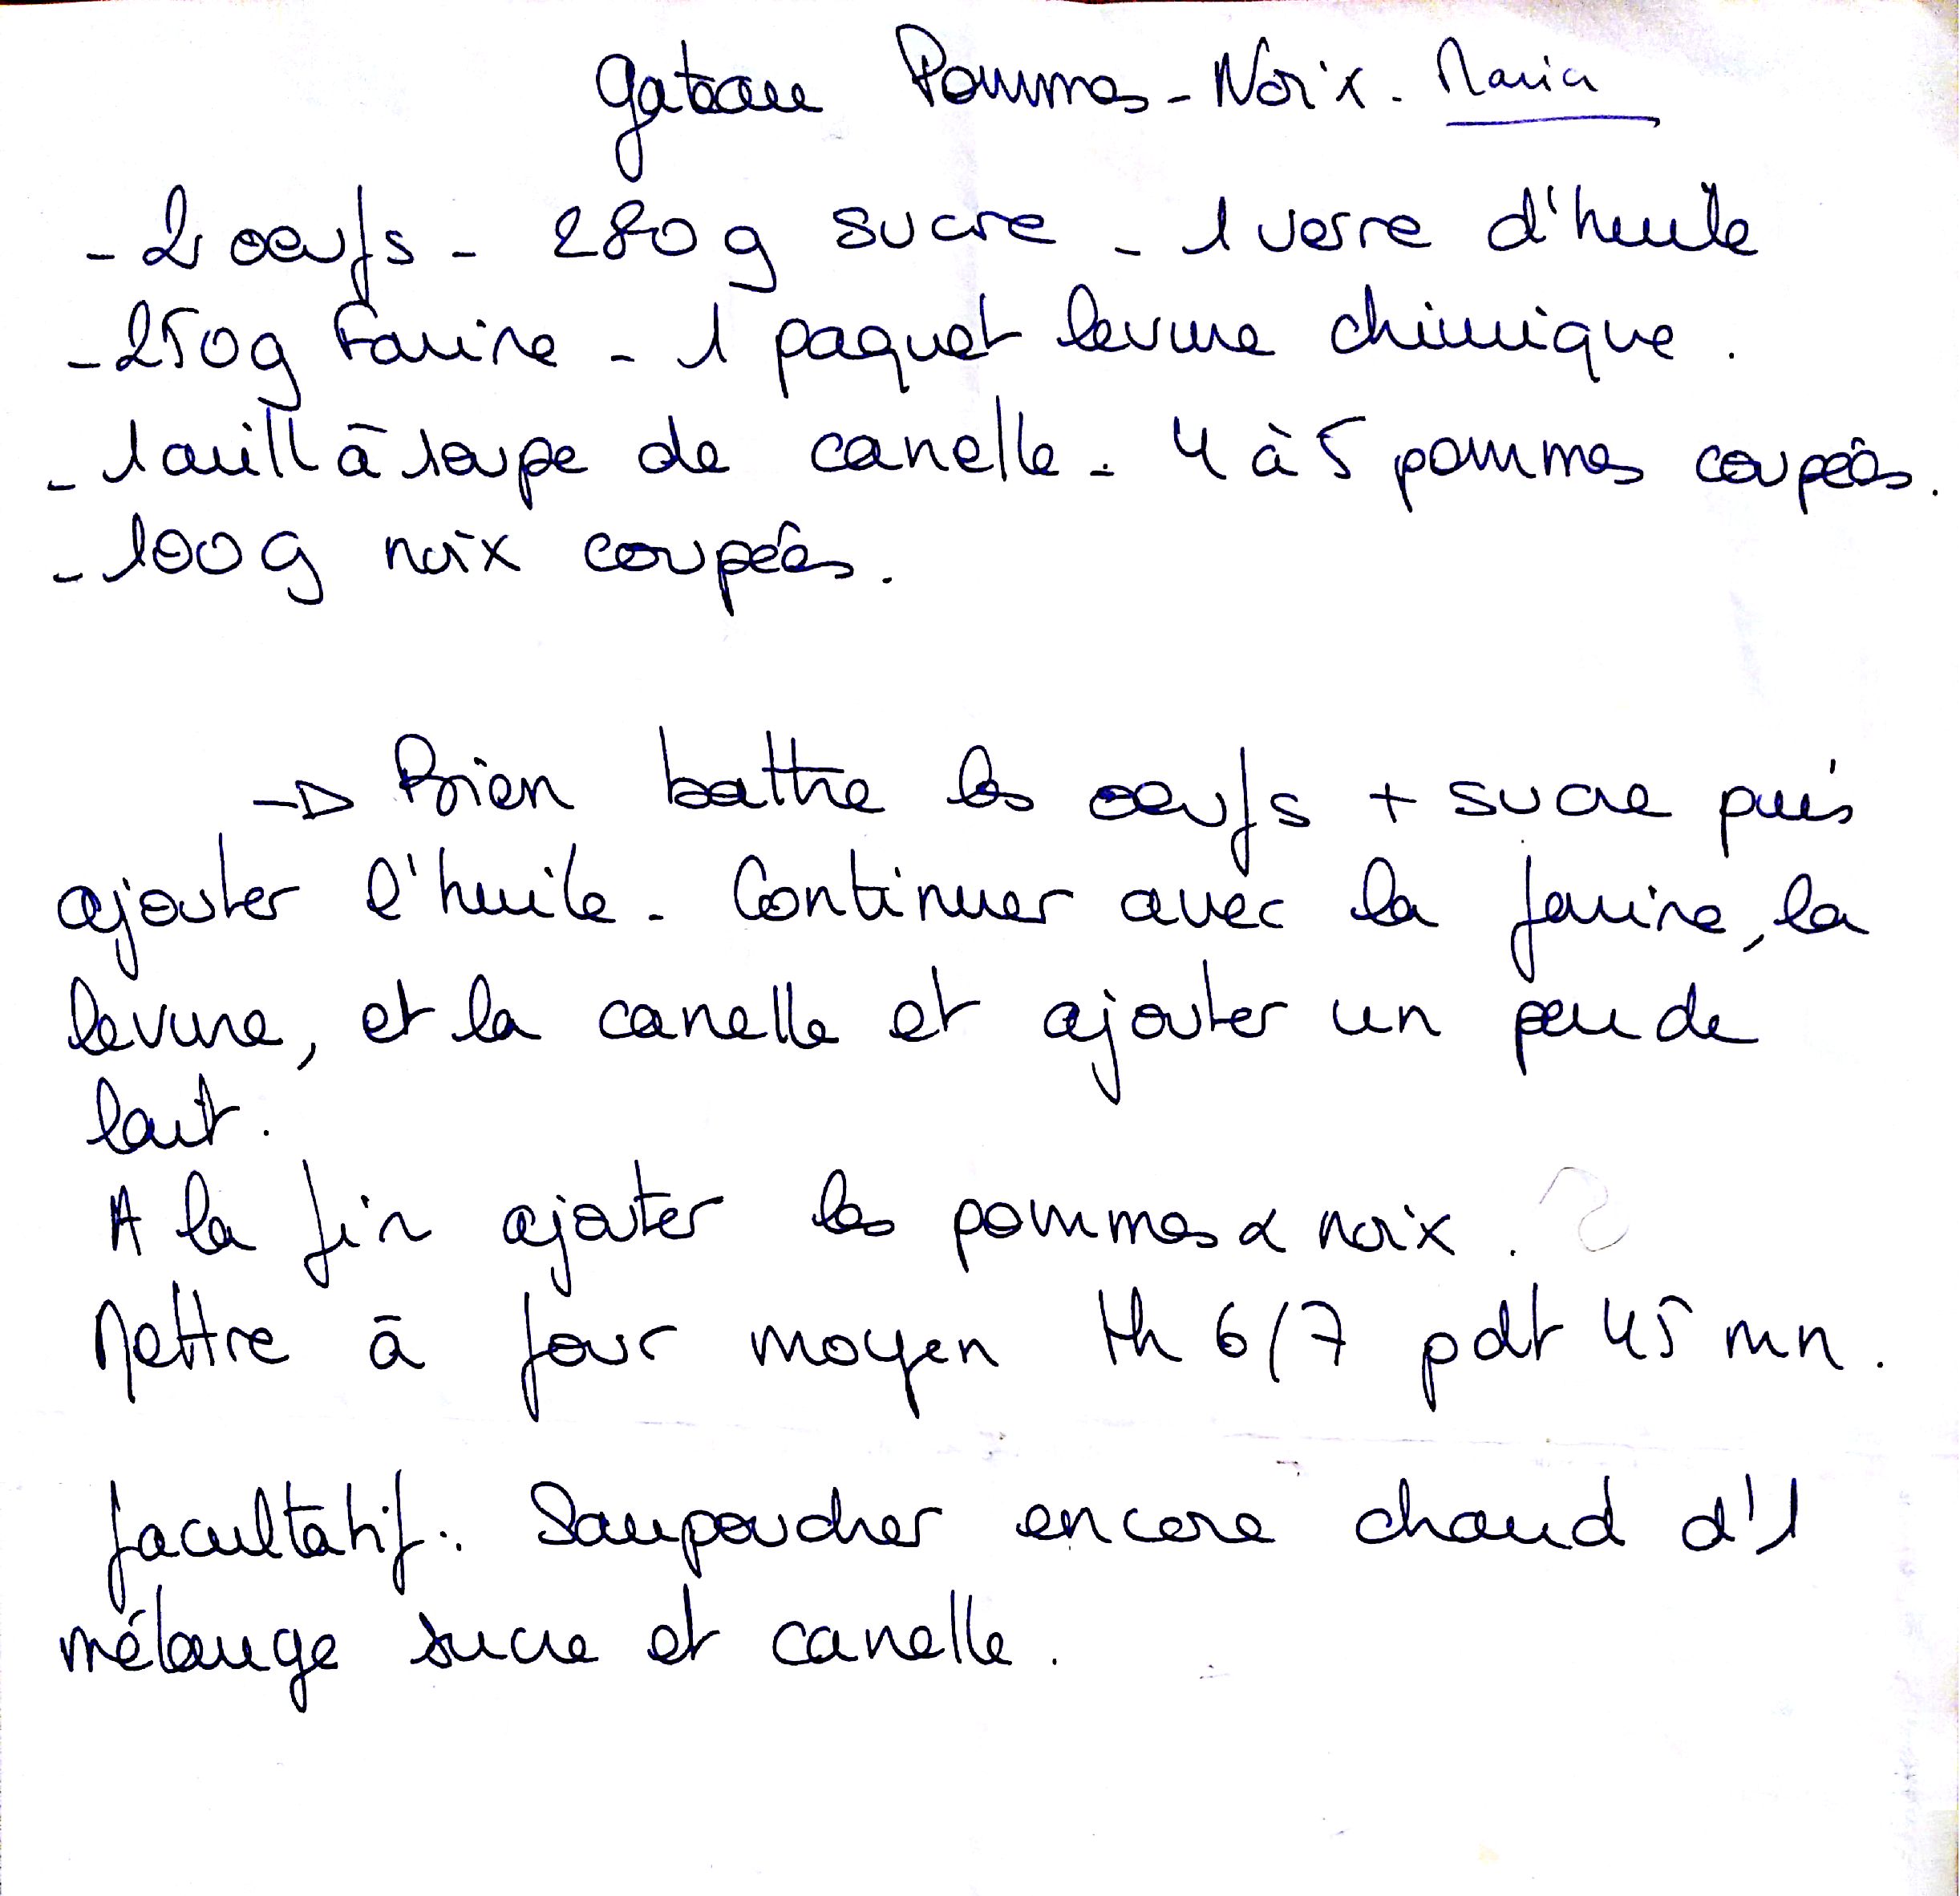 Gateau Pommes - Noix - Maria
- 2 oeufs - 280 g sucre - 1 verre d'huile
- 250g Farine - 1 paquet levure chimique.
- 1 cuill à soupe de canelle - 4 à 5 pommes coupées.
- 100 g noix coupées.
-> Bien battre les oeufs + sucre puis
ajouter l'huile - Continuer avec la farine, la
levure, et la canelle et ajouter un peu de
lait.
A la fin ajouter les pommes & noix.
Mettre à four moyen th 6/7 pdt 45 mn.
facultatif: Saupoudrer encore chaud d'1
mélange sucre et canelle.